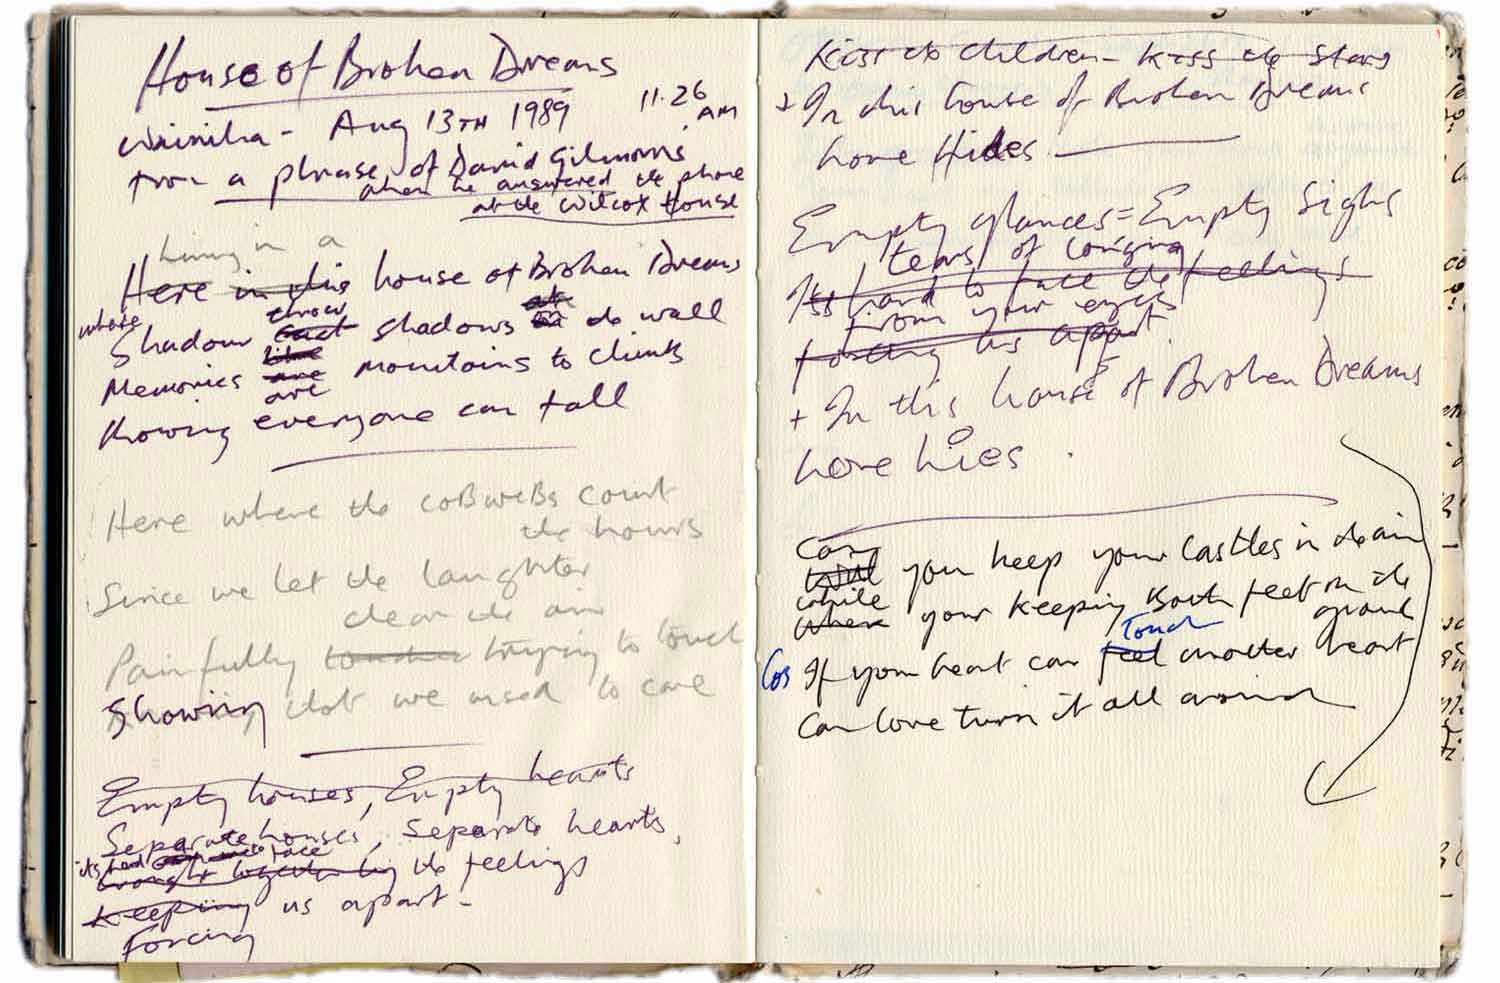 House of Broken Dreams
Wainiha - Aug 13TH 1989 11.26 AM
from a phrase of David Gilmours
when he answered the phone
at the Wilcox House
Living in a
Here in this house of Broken Dreams
where throw
Shadows cast shadows on the wall
like
Memories are mountains to climb
are
Knowing everyone can fall
Here where the coBweBs count
the hours
Since we let the laughter
clear the air
Painfully touched trying to touch
Showing that we used to care
Empty houses, Empty hearts
Separate houses, Separate hearts,
its hard to face
brought together by the feelings
Keeping us apart -
Forcing
Kiss the children - Kiss the stars
+ In this house of Broken Dreams
love Hides
Empty glances = Empty Sighs
tears of longing
Its hard to face the feelings
from your eyes
forcing us apart
+ In this house of Broken Dreams
love lies.
Can
Will you keep your castles in the air
while
When your keeping Both feet on the
ground
Touch
Cos If your heart can feel another heart
Can love turn it all around